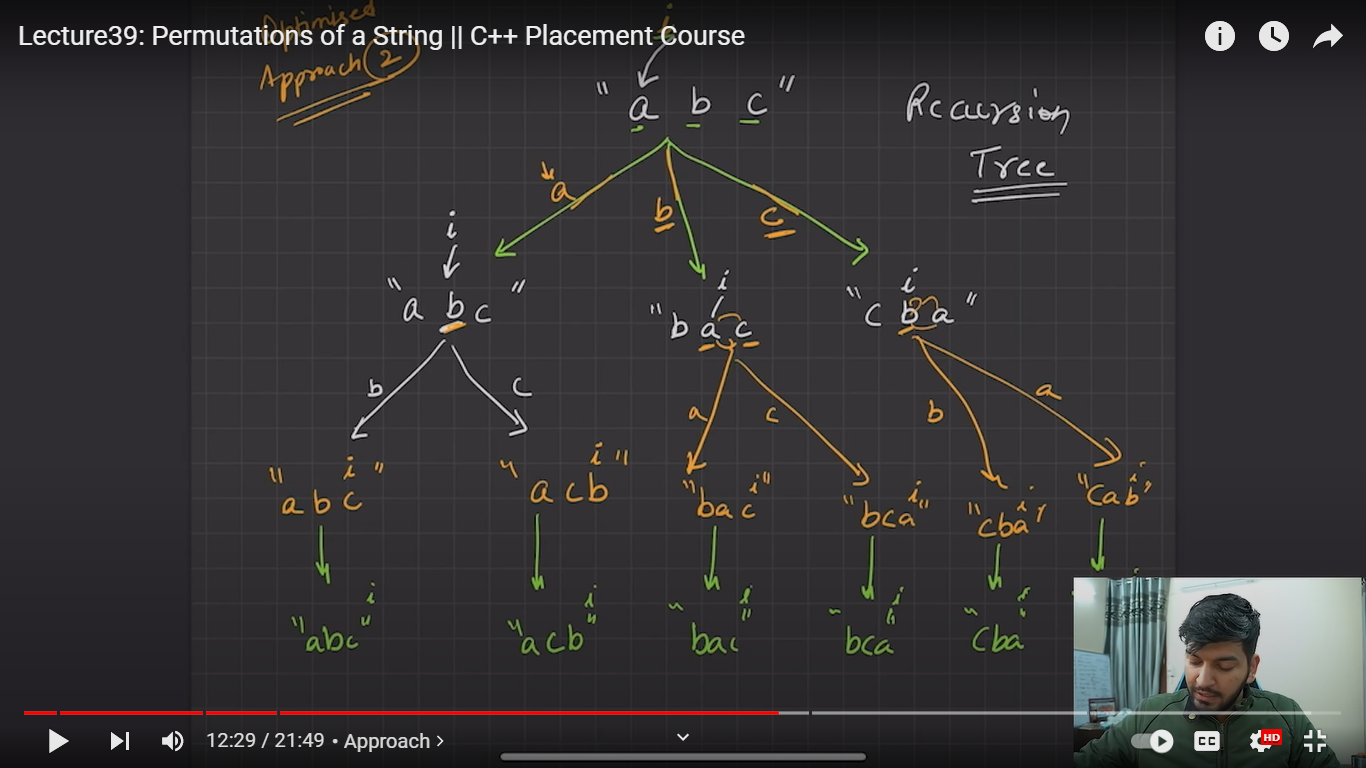 Lecture39: Permutations of a String || C++ Placement Course
Optimised
Approach 2
i
"a b c"
Recursion
Tree
a b c
i
"a b c"
i
"b a c"
i
"c b a"
b c
a c
b a
i
"a b c"
i
"a c b"
i
"bac"
i
"bca"
i
"cba"
i
"cab"
i
"abc"
i
"acb"
i
"bac"
i
"bca"
i
"cba"
12:29 / 21:49 • Approach >
CC
HD